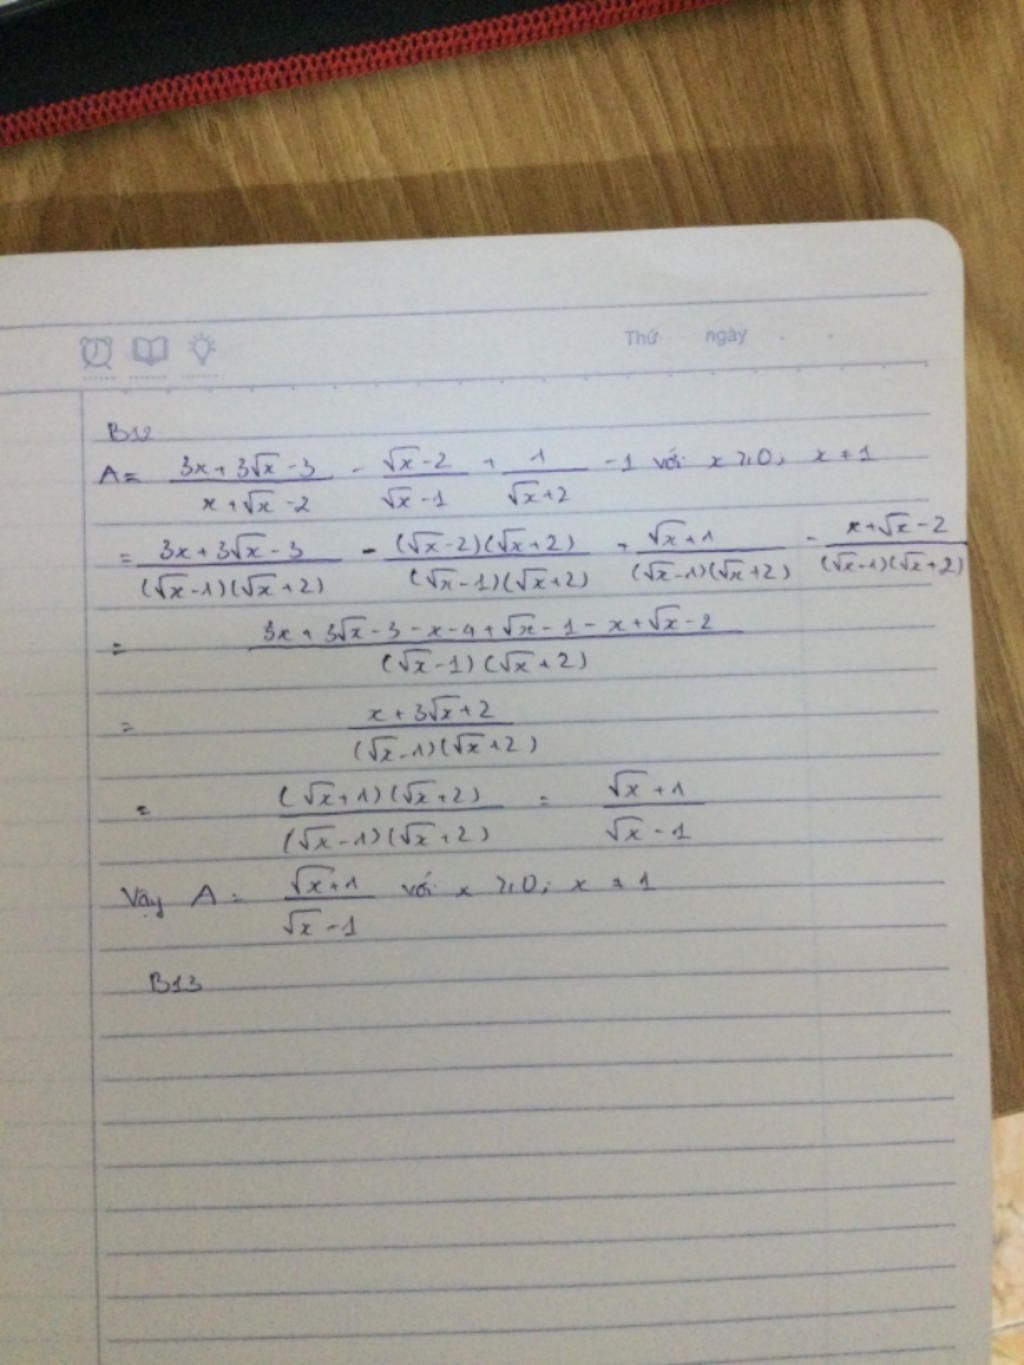 Thứ ngày
B12
A = \frac{3x+3\sqrt{x}-3}{x+\sqrt{x}-2} - \frac{\sqrt{x}-2}{\sqrt{x}-1} + \frac{1}{\sqrt{x}+2} - 1 với x ≥ 0; x ≠ 1
= \frac{3x+3\sqrt{x}-3}{(\sqrt{x}-1)(\sqrt{x}+2)} - \frac{(\sqrt{x}-2)(\sqrt{x}+2)}{(\sqrt{x}-1)(\sqrt{x}+2)} + \frac{\sqrt{x}+1}{(\sqrt{x}-1)(\sqrt{x}+2)} - \frac{x+\sqrt{x}-2}{(\sqrt{x}-1)(\sqrt{x}+2)}
= \frac{3x+3\sqrt{x}-3-x-4+\sqrt{x}-1-x+\sqrt{x}-2}{(\sqrt{x}-1)(\sqrt{x}+2)}
= \frac{x+3\sqrt{x}+2}{(\sqrt{x}-1)(\sqrt{x}+2)}
= \frac{(\sqrt{x}+1)(\sqrt{x}+2)}{(\sqrt{x}-1)(\sqrt{x}+2)} = \frac{\sqrt{x}+1}{\sqrt{x}-1}
Vậy A = \frac{\sqrt{x}+1}{\sqrt{x}-1} với x ≥ 0; x ≠ 1
B13